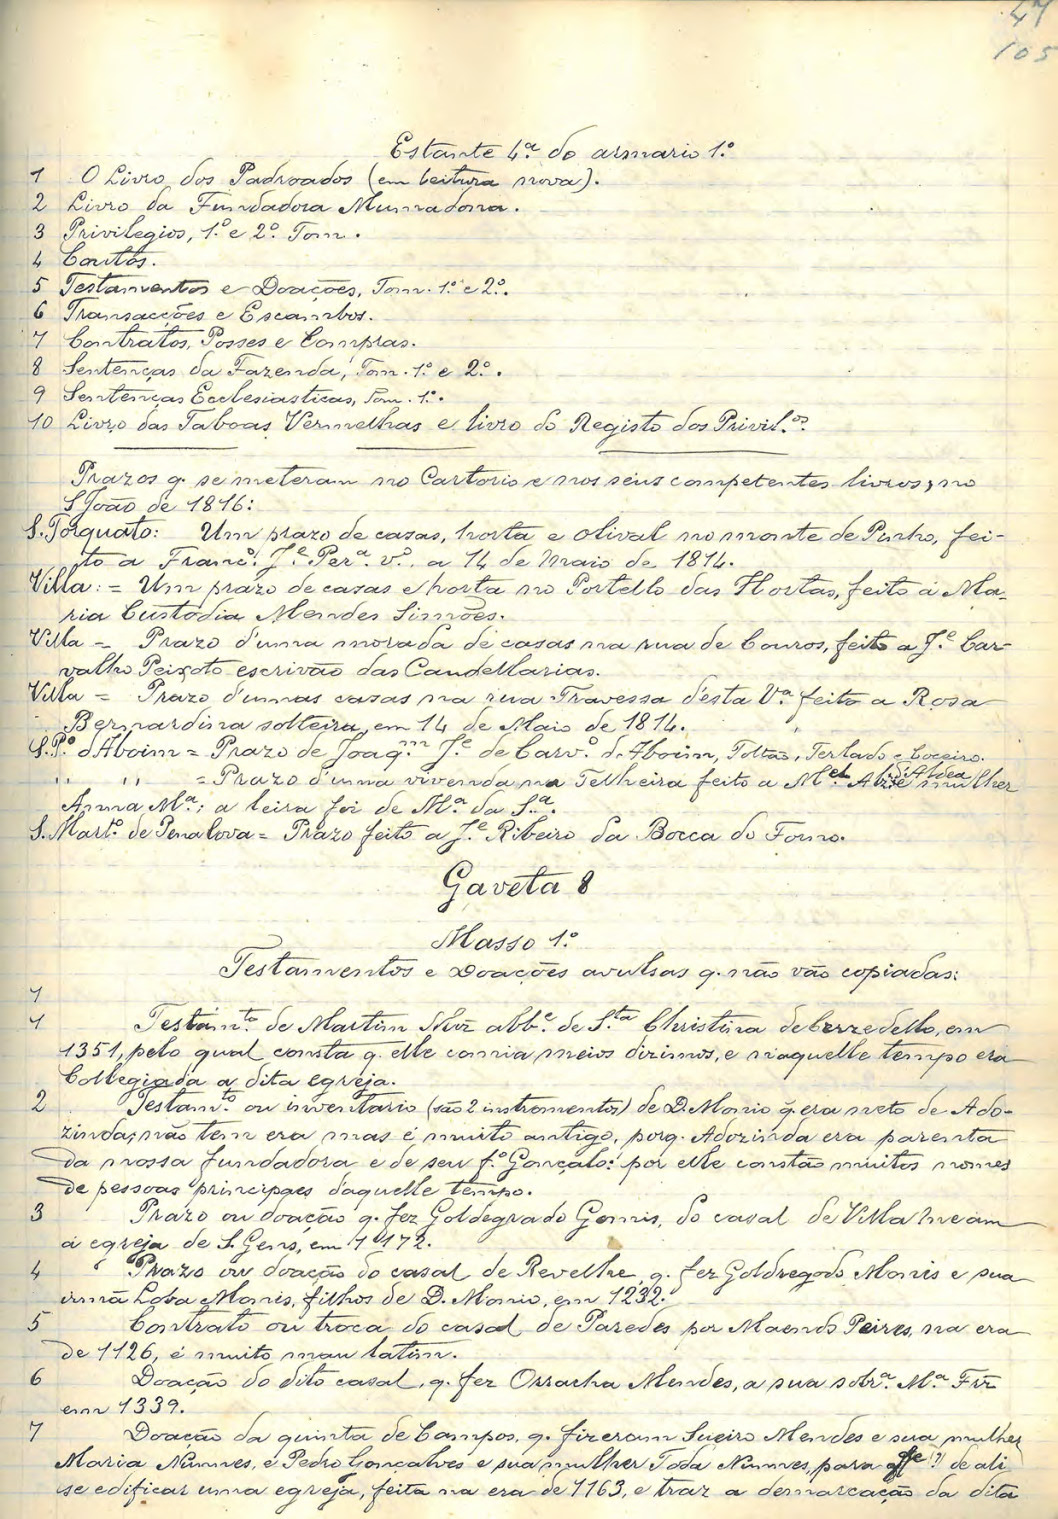 47
105
Estante 4.ª do armario 1.º
1 O Livro dos Padroados (em leitura nova).
2 Livro da Fundadora Mumadona.
3 Privilegios, 1.º e 2.º Tom.
4 Coutos.
5 Testamentos e Doações, Tom. 1.º e 2.º.
6 Transacções e Escambos.
7 Contratos, Posses e Compras.
8 Sentenças da Fazenda, Tom. 1.º e 2.º.
9 Sentenças Ecclesiasticas, Tom. 1.º.
10 Livro das Taboas Vermelhas e livro do Registo dos Privil.os
Prazos q. se meteram no Cartorio e nos seus competentes livros, no
S. João de 1816:
S. Torquato: Um prazo de casas, horta e olival no monte de Pinho, fei-
to a Franc.º J.e Per.ª v.º a 14 de Maio de 1814.
Villa: = Um prazo de casas e horta no Portello das Hortas, feito á Ma-
ria Custodia Mendes Simões.
Villa = Prazo d'uma morada de casas na rua de Couros, feito a J.e Car-
valho Peixoto escrivão das Candellarias.
Villa = Prazo d'umas casas na rua Travessa d'esta V.ª feito a Rosa
Bernardina solteira, em 14 de Maio de 1814.
S. P.º d'Aboim = Prazo de Joaq.m J.e de Carv.º d'Aboim, Tellado = Coceiro.
" " = Prazo d'uma vivenda na Telheira feito a M.el d'Aldea e mulher
Anna M.ª; a leira foi de M.ª da S.ª.
S. Mart.º de Penalova = Prazo feito a J.e Ribeiro da Bocca do Forno.
Gaveta 8
Masso 1.º
Testamentos e Doações avulsas q. não vão copiadas:
1
1 Testam.to de Martim abb.e de S.ta Christina de Cerzedello, em
1351, pelo qual consta q. elle comia meios dizimos, e n'aquelle tempo era
Collegiada a dita egreja.
2 Testam.to ou inventario (são 2 instromentos) de D. Monio q. era neto de Ado-
zinda; não tem era mas é muito antigo, porq. Adozinda era parenta
da nossa fundadora e de seu f.º Gonçalo: por elle constão muitos nomes
de pessoas principaes daquelle tempo.
3 Prazo ou doação q. fez Goldegrado Gomis, do casal de Villa Meam
á egreja de S. Gens, em 1172.
4 Prazo ou doação do casal de Revelhe, q. fez Goldregodo Monis e sua
irmã Loba Monis, filhos de D. Monio, em 1232.
5 Contrato ou troca do casal de Paredes por Maendo Peires, na era
de 1126, é muito mau latim.
6 Doação do dito casal, q. fez Orracha Mendes, a sua sobr.ª M.ª Frz
em 1339.
7 Doação da quinta de Campos, q. fizeram Sueiro Mendes e sua mulher
Maria Nunnes, e Pedro Gonçalves e sua mulher Toda Nunnes, para (?) de ali
se edificar uma egreja, feita na era de 1163, e traz a demarcação da dita